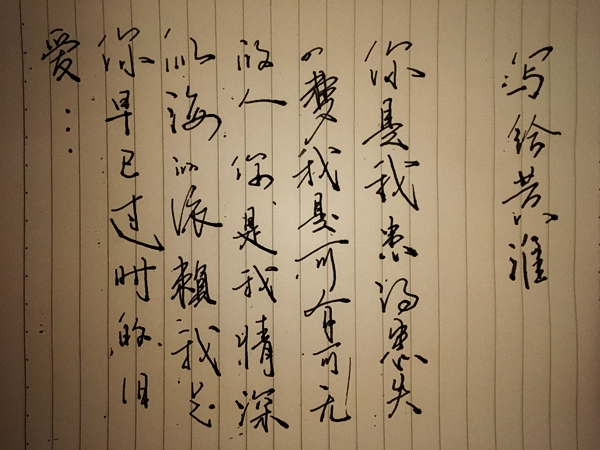 写给
你是我患得患失
的梦我是可有可无
的人你是我情深
似海的依賴我是
你早已过时的旧
爱...